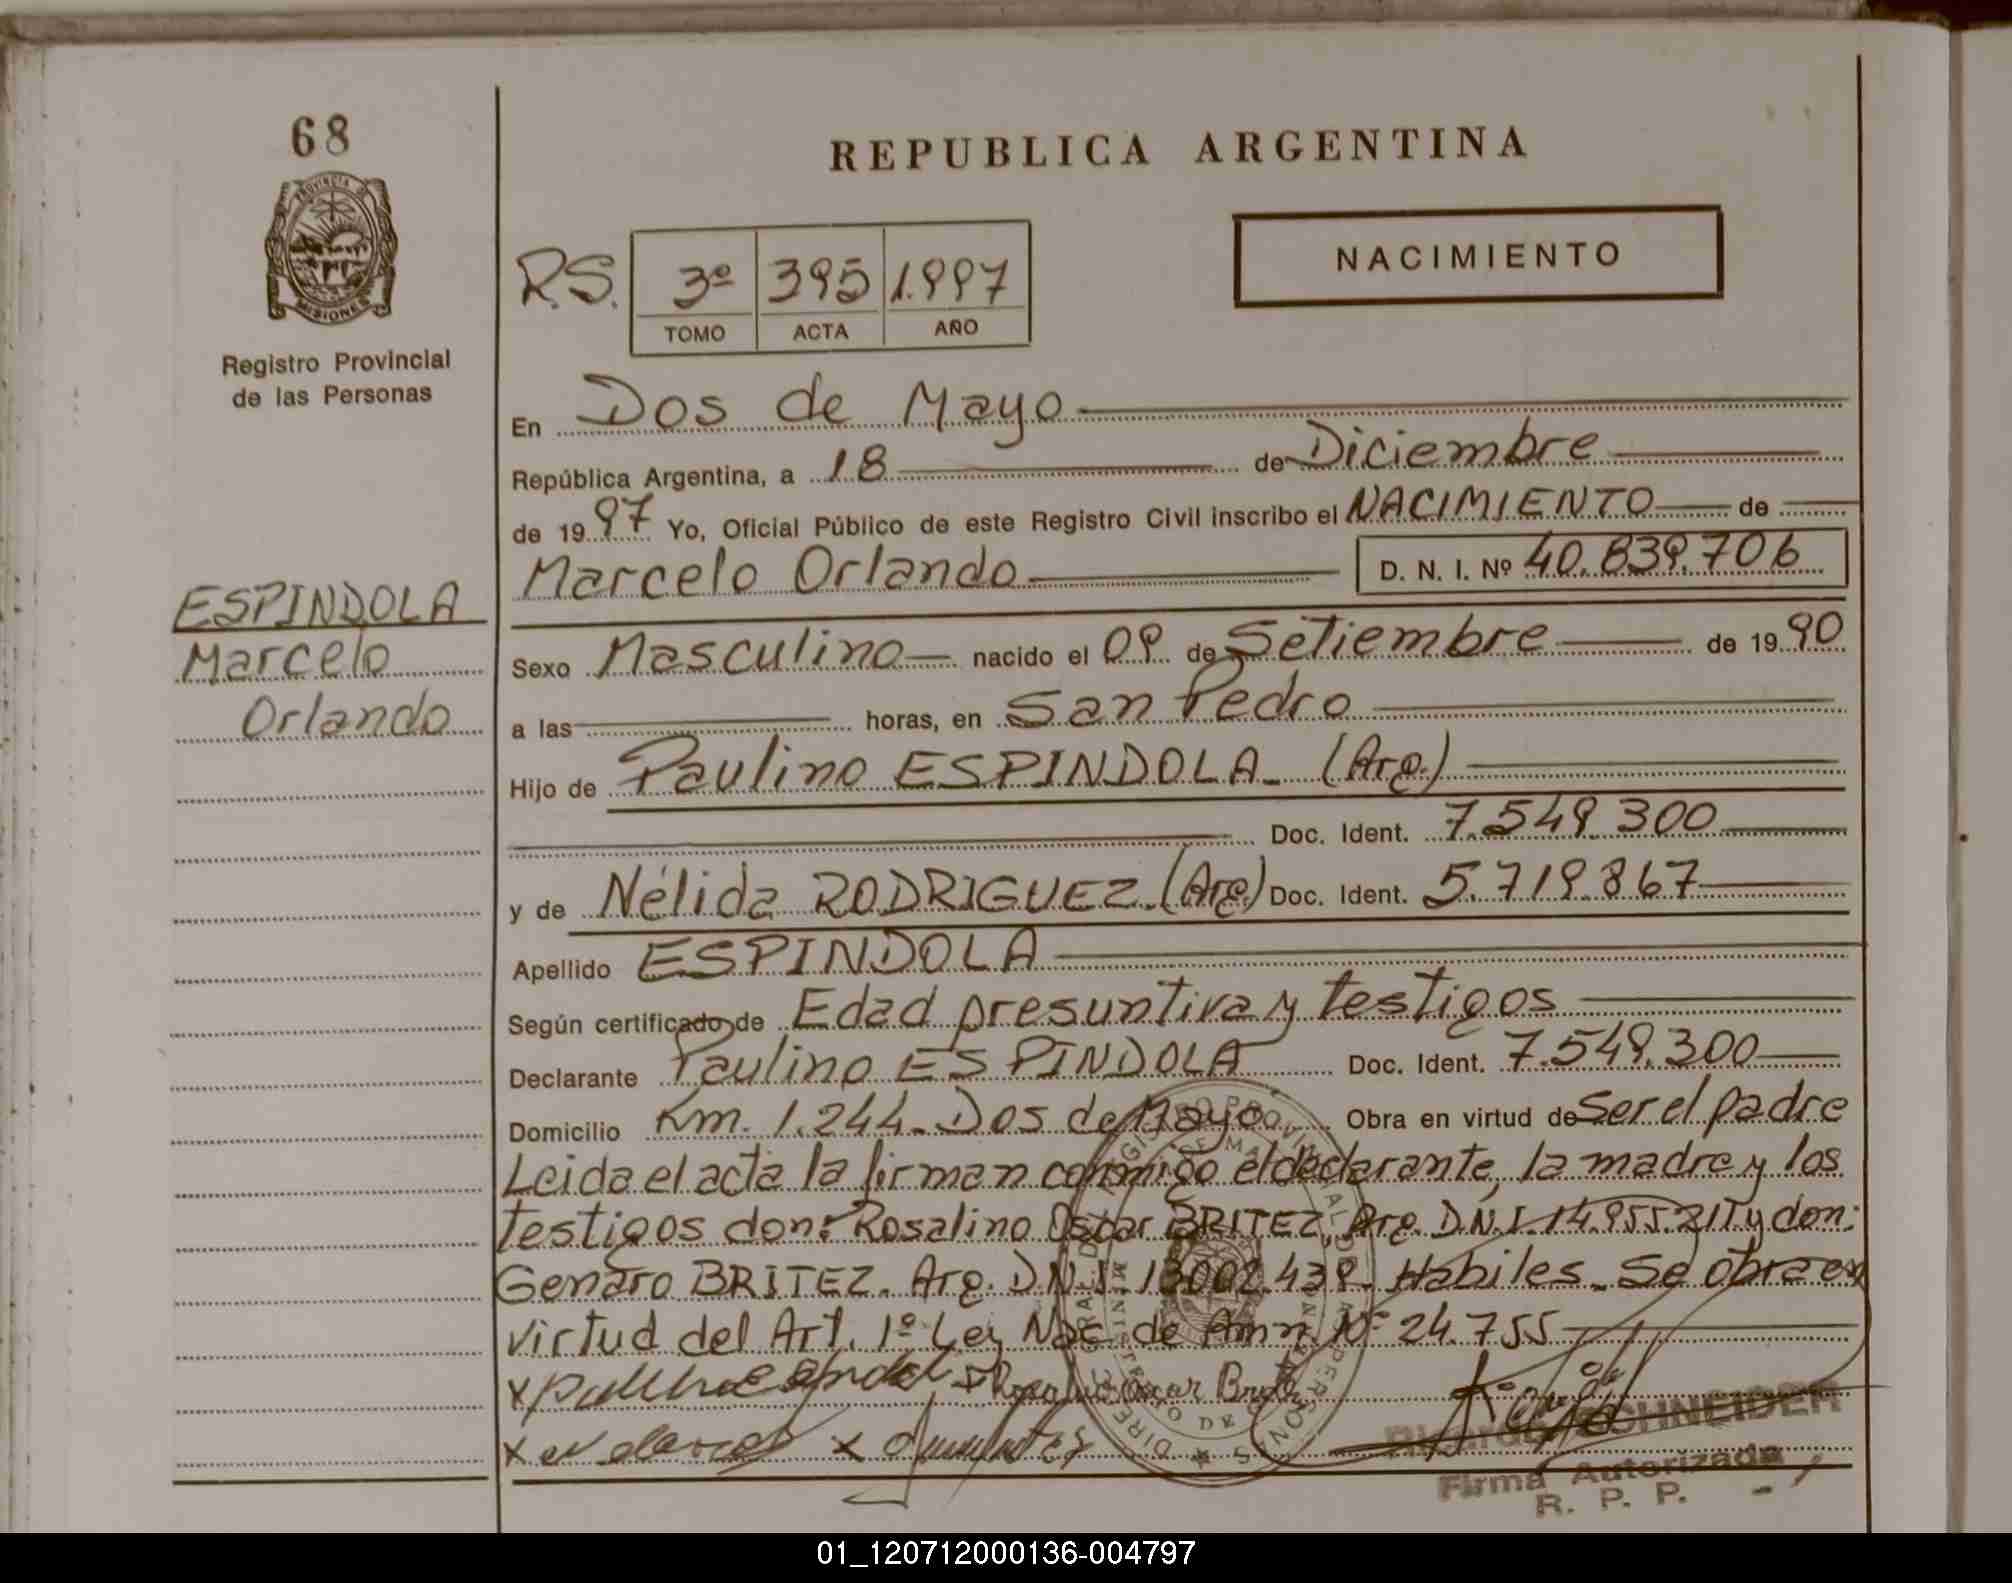 68
PROVINCIA DE
MISIONES
Registro Provincial
de las Personas
REPUBLICA ARGENTINA
NACIMIENTO
R.S. 3º 395 1.997
TOMO ACTA AÑO
En Dos de Mayo
República Argentina, a 18 de Diciembre
de 1997 Yo, Oficial Público de este Registro Civil inscribo el NACIMIENTO de
Marcelo Orlando D. N. I. Nº 40.839.706
ESPINDOLA
Marcelo
Orlando
Sexo Masculino nacido el 09 de Setiembre de 1990
a las horas, en San Pedro
Hijo de Paulino ESPINDOLA (Arg.)
Doc. Ident. 7.549.300
y de Nélida RODRIGUEZ (Arg.) Doc. Ident. 5.719.867
Apellido ESPINDOLA
Según certificado de Edad presuntiva y testigos
Declarante Paulino ESPINDOLA Doc. Ident. 7.549.300
Domicilio Km. 1.244 Dos de Mayo Obra en virtud de Ser el padre
Leida el acta la firman conmigo el declarante, la madre y los
testigos don: Rosalino Oscar BRITEZ, Arg. D.N.I. y don:
Genaro BRITEZ. Arg. D.N.I. 13.002.439. Habiles. Se obra en
virtud del Art. 1º Ley Nac. de Amn. Nº 24.755
Ricardo SCHNEIDER
Firma Autorizada
R. P. P.
01_120712000136-004797